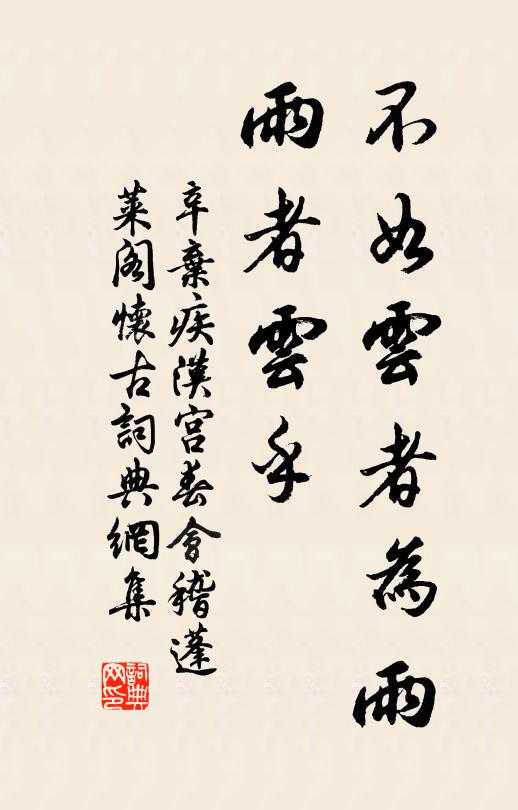 不知雲者為雨
雨者雲乎
辛棄疾漢宮春會稽蓬
萊閣懷古詞典網集
詞典网印